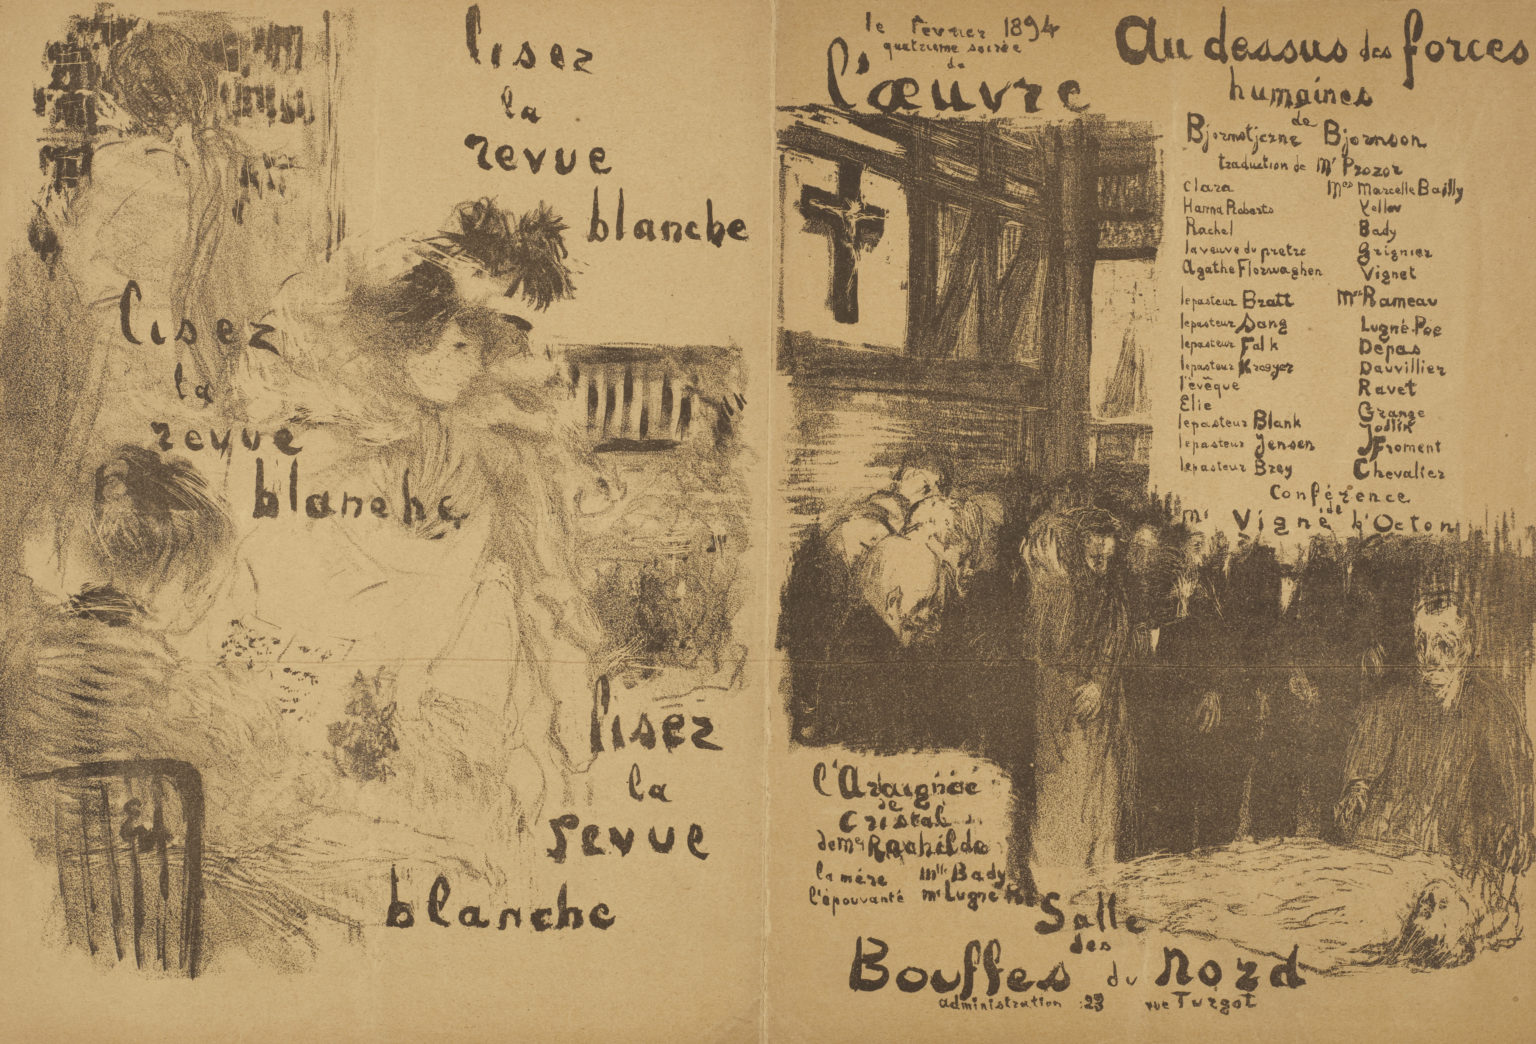 lisez
la
revue
blanche
lisez
la
revue
blanche
lisez
la
revue
blanche
le fevrier 1894
quatrieme soirée
de
l'œuvre
Au dessus des forces
humaines
de
Bjornstjerne Bjornson
traduction de Mr Prozor
Clara Mmes Marcelle Bailly
Hanna Roberts
Rachel Bady
la veuve du pretre Grignier
Agathe Florwaghen Vignet
le pasteur Bratt Mrs Rameau
le pasteur Sang Lugné-Poe
le pasteur Falk Depas
le pasteur Kroeyer Dauvillier
l'évêque Ravet
Elie Grange
le pasteur Blank
le pasteur Jensen Froment
le pasteur Brey Chevalier
Conférence
de
Mr Vigné d'Octon
l'Araignée
de
Cristal
de Me Rachilde
la mére Mlle Bady
l'épouvanté Mr Lugné Poe
Salle
des
Bouffes du Nord
administration : 23 rue Turgot